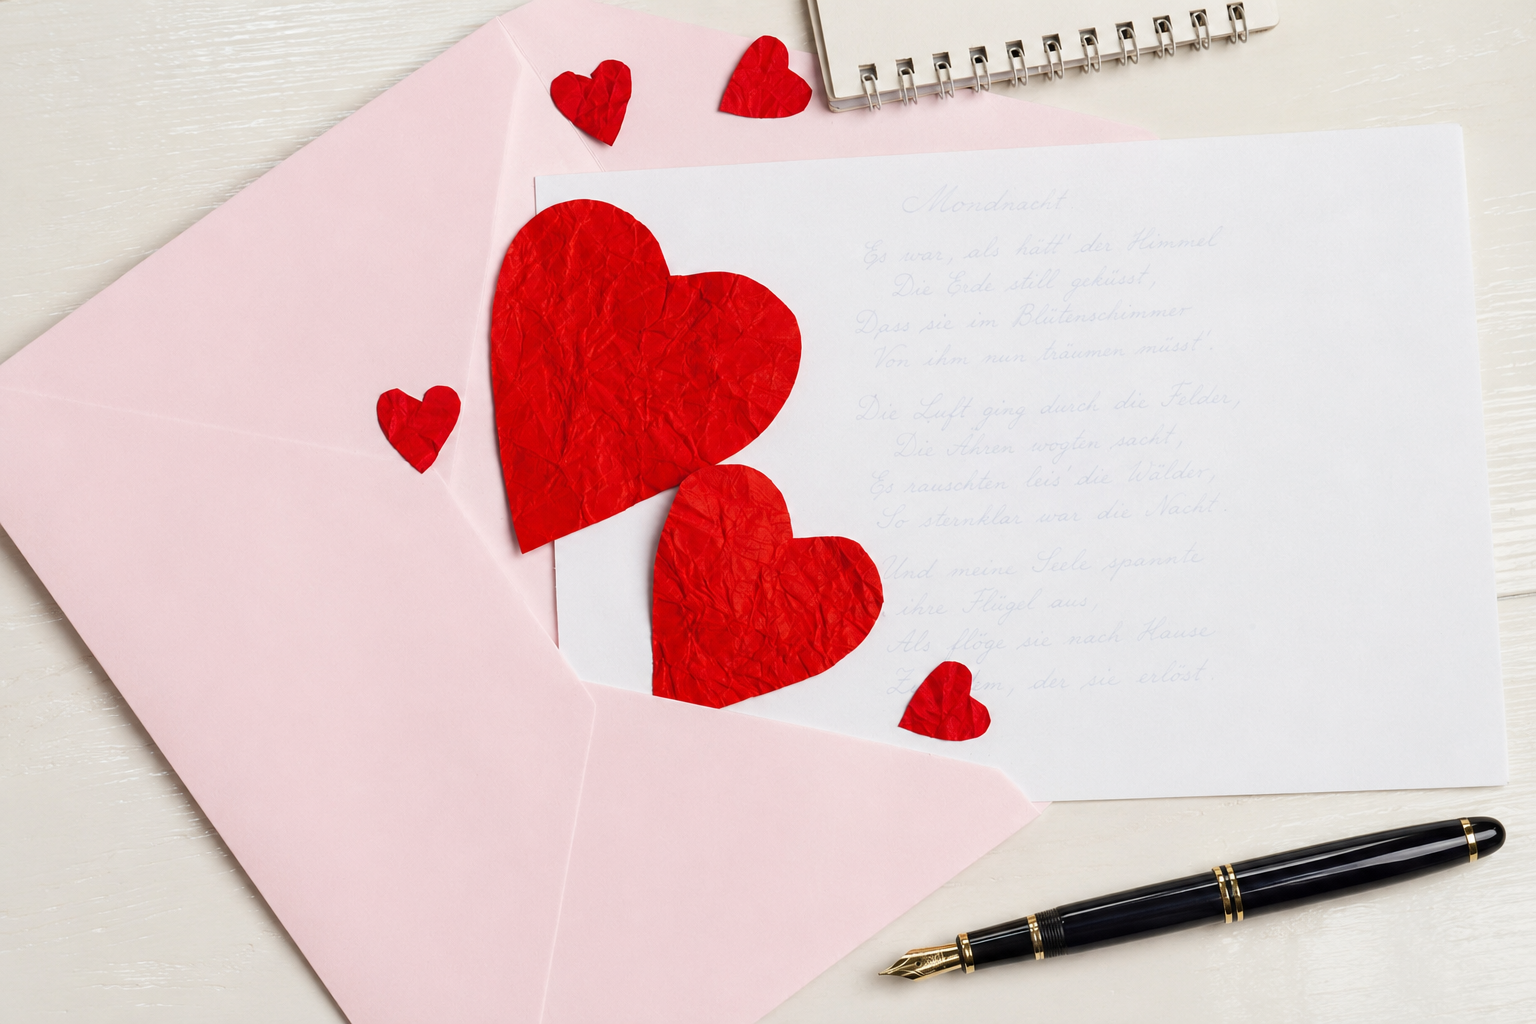 Mondnacht
Es war, als hätt' der Himmel
Die Erde still geküsst,
Dass sie im Blütenschimmer
Von ihm nun träumen müsst'.
Die Luft ging durch die Felder,
Die Ähren wogten sacht,
Es rauschten leis' die Wälder,
So sternklar war die Nacht.
Und meine Seele spannte
ihre Flügel aus,
Als flöge sie nach Hause
der sie erlöst.